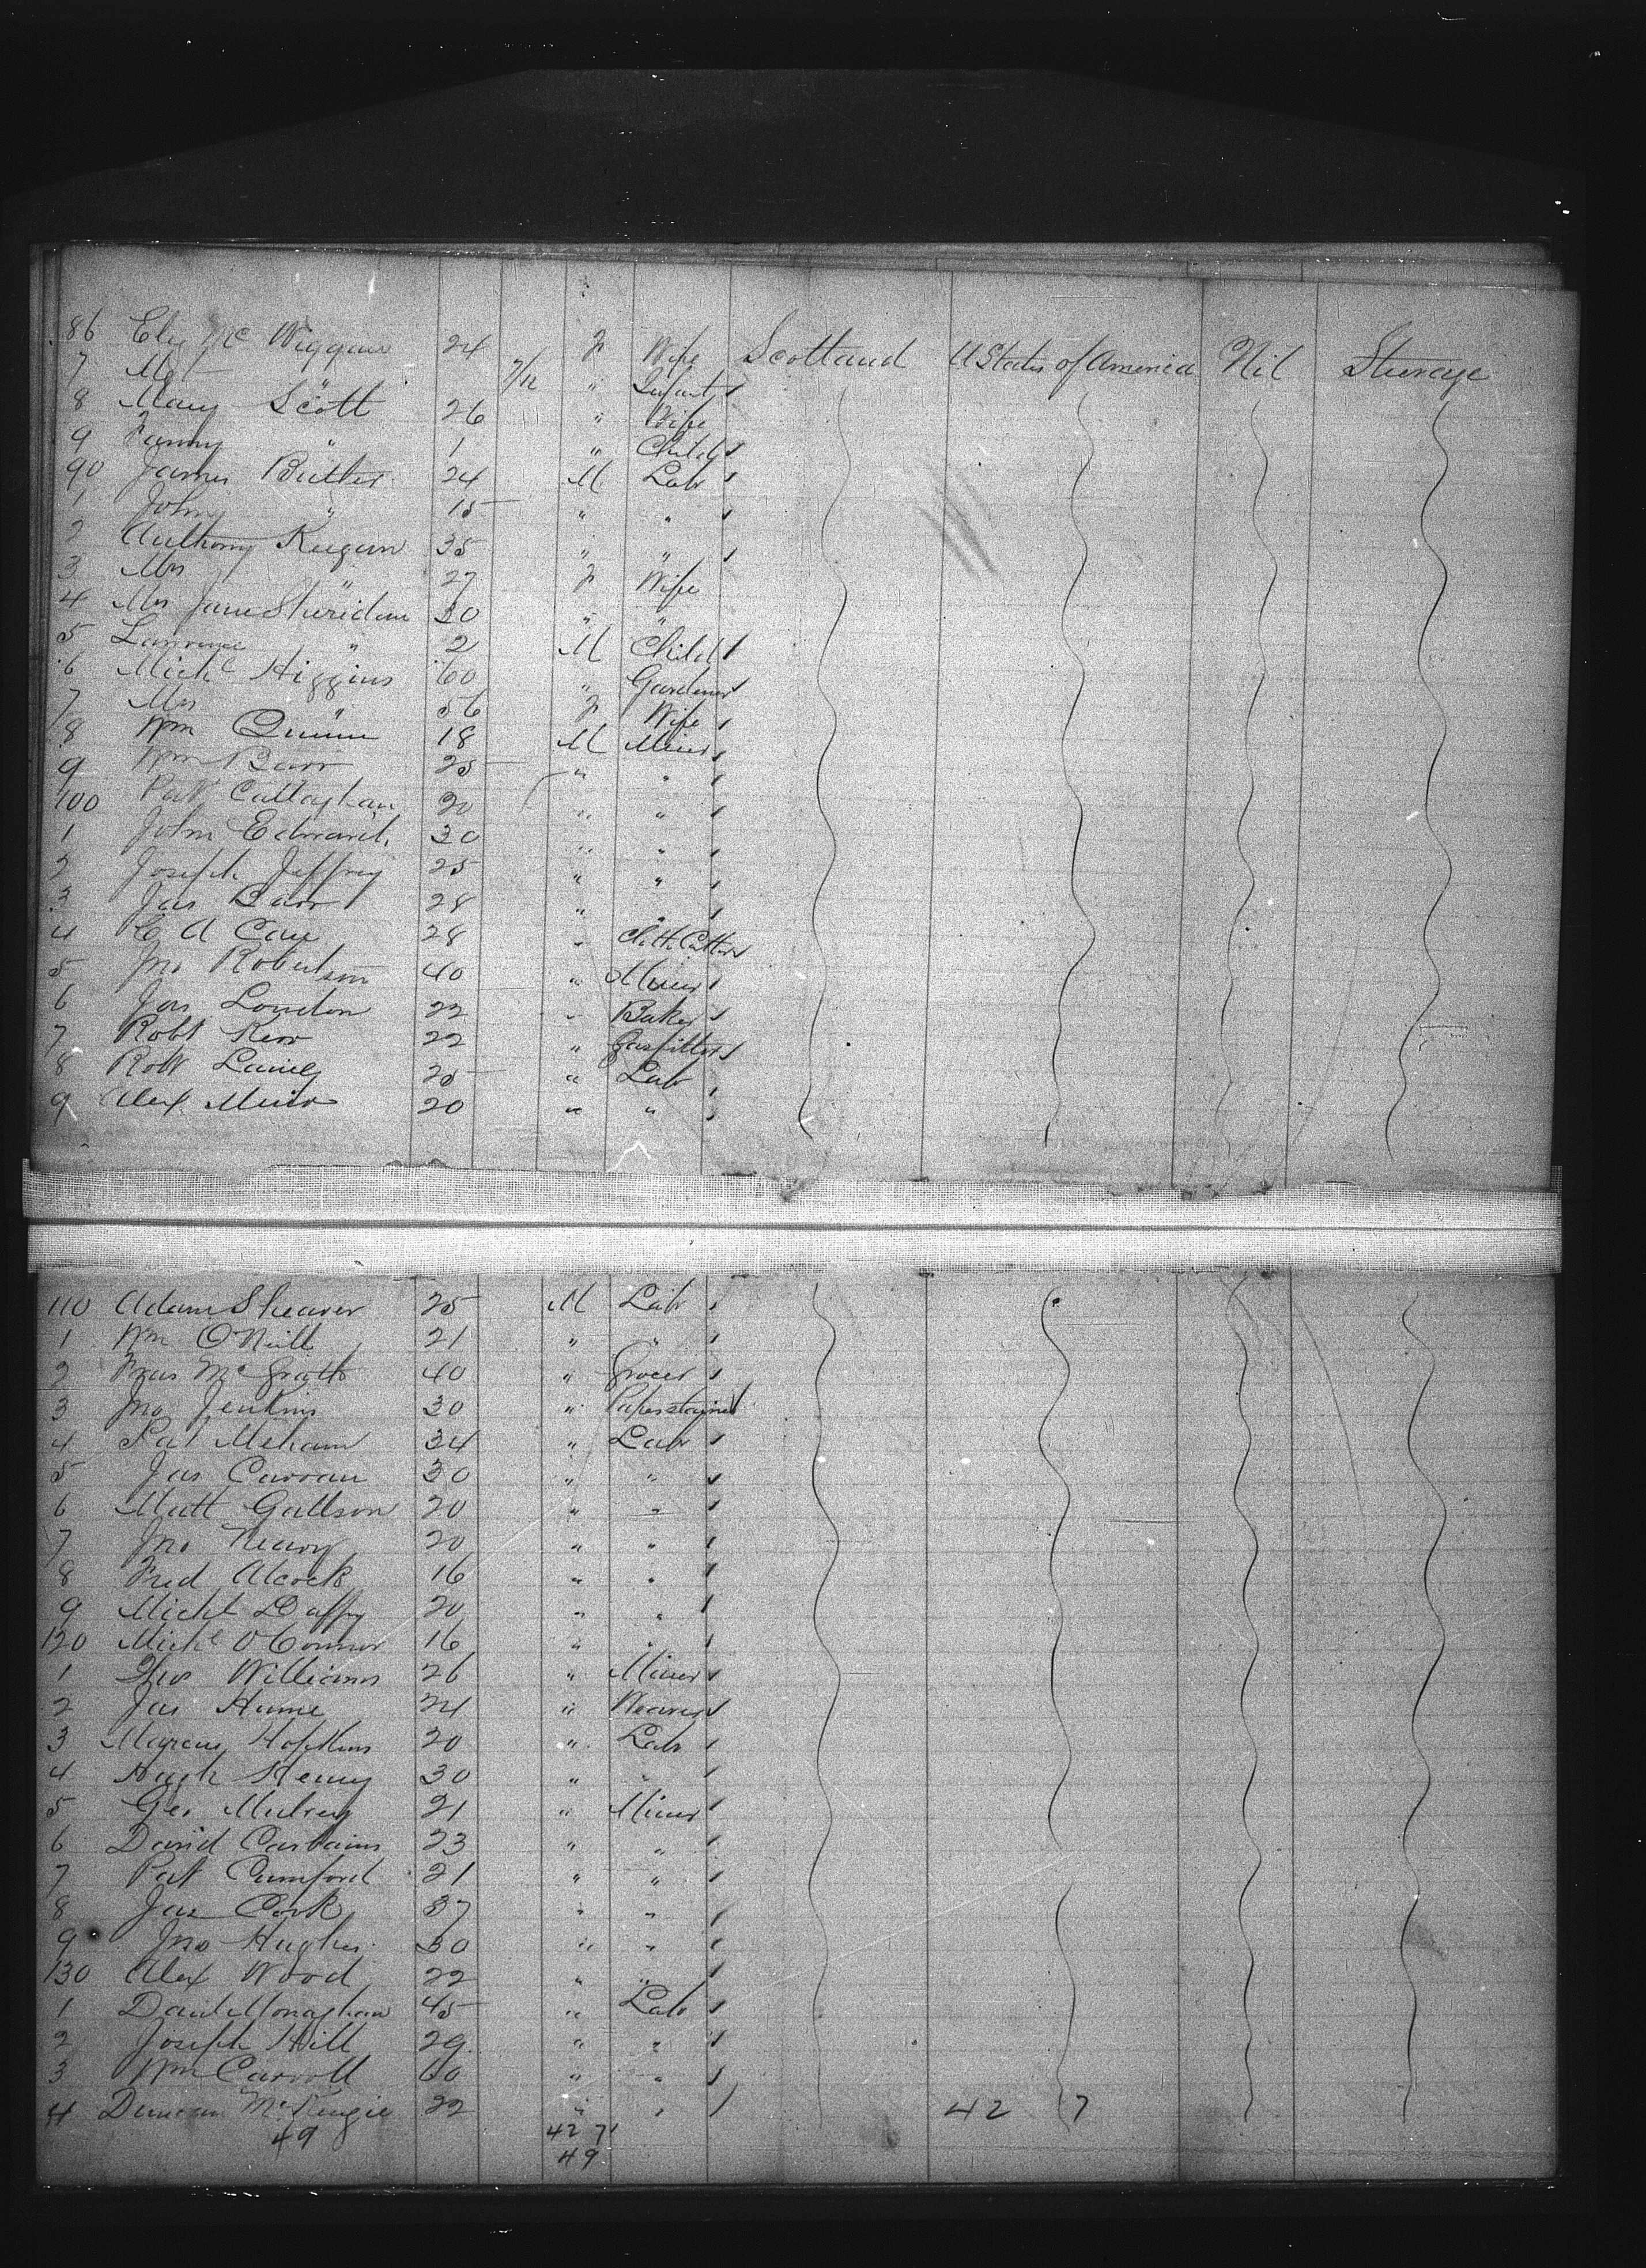 86 Eliz McWiggan 24 F Wife Scotland U States of America Nil Steerage
7 Mgt " 7/12 " Infant
8 Mary Scott 26 " Wife
9 Fanny " 1 " Child
90 James Butler 24 M Lab
1 John " 15 " "
2 Anthony Keegan 35 " "
3 Mrs " 27 F Wife
4 Mrs Jane Sheridan 30 " "
5 Lawrence " 2 M Child
6 Michl Higgins 60 " Gardener
7 Mrs " 56 F Wife
8 Wm Quinn 18 M Miner
9 Wm Barr 25 " "
100 Patk Callaghan 20 " "
1 John Edward 30 " "
2 Joseph Jeffrey 25 " "
3 Jas Barr 28 " "
4 A 28 " Cloth Cutter
5 Jno Robertson 40 " Miner
6 Jas Loudon 22 " Baker
7 Robt Kerr 22 " Gasfitter
8 Robt Laing 25 " Lab
9 Alex Muir 20 " "
110 Adam Shearer 25 M Lab
1 Wm O'Neill 21 " "
2 Fras McGrath 40 " Grocer
3 Jno Jenkins 30 " Paperstainer
4 Pat Mehan 34 " Lab
5 Jas Curran 30 " "
6 Matt Gallson 20 " "
7 Jno 20 " "
8 Fred Alcock 16 " "
9 Michl Duffy 20 " "
120 Michl O'Connor 16 " "
1 Williams 26 " Miner
2 Jas Hume 24 " Weaver
3 Marcus Hopkins 20 " Lab
4 Hugh 30 " "
5 Geo 21 " Miner
6 David 23 " "
7 Patk Cumford 21 " "
8 Jas Cork 37 " "
9 Jno Hughes 30 " "
130 Alex Wood 22 " "
1 David Monaghan 45 " Lab
2 Joseph Hill 29 " "
3 Wm Carroll 60 " "
4 Duncan McKenzie 22 " " 42 7
49 42 7
49